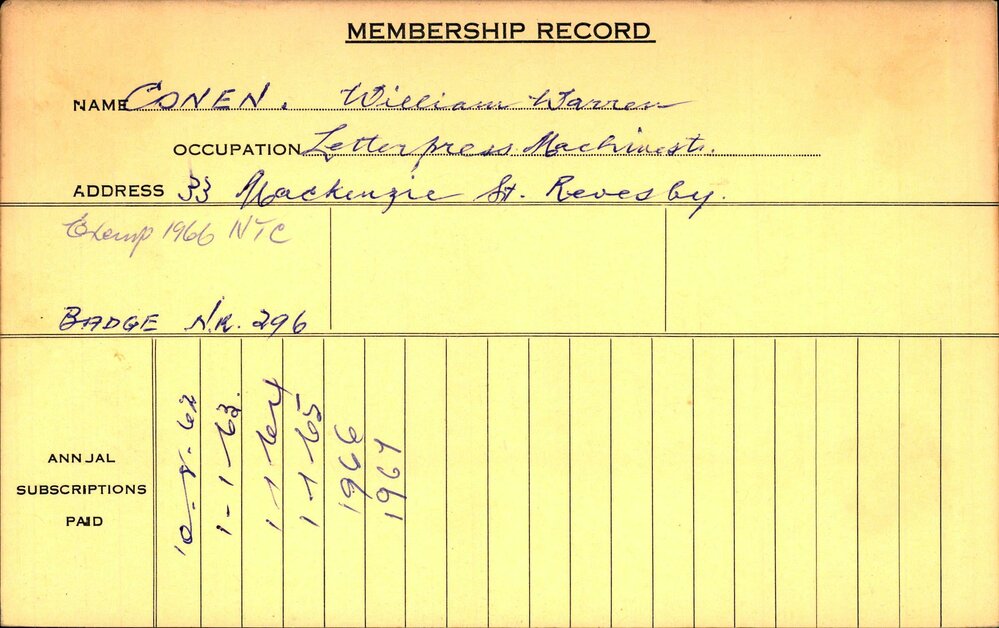 MEMBERSHIP RECORD
NAME CONEN. William Warren
OCCUPATION Letterpress Machinest.
ADDRESS 33 Mackenzie St. Revesby.
Exemp 1966 NTC
BADGE NR. 296
ANNUAL SUBSCRIPTIONS PAID
10-8-62
1-1-63.
1-1-64
1-1-65
1966
1967